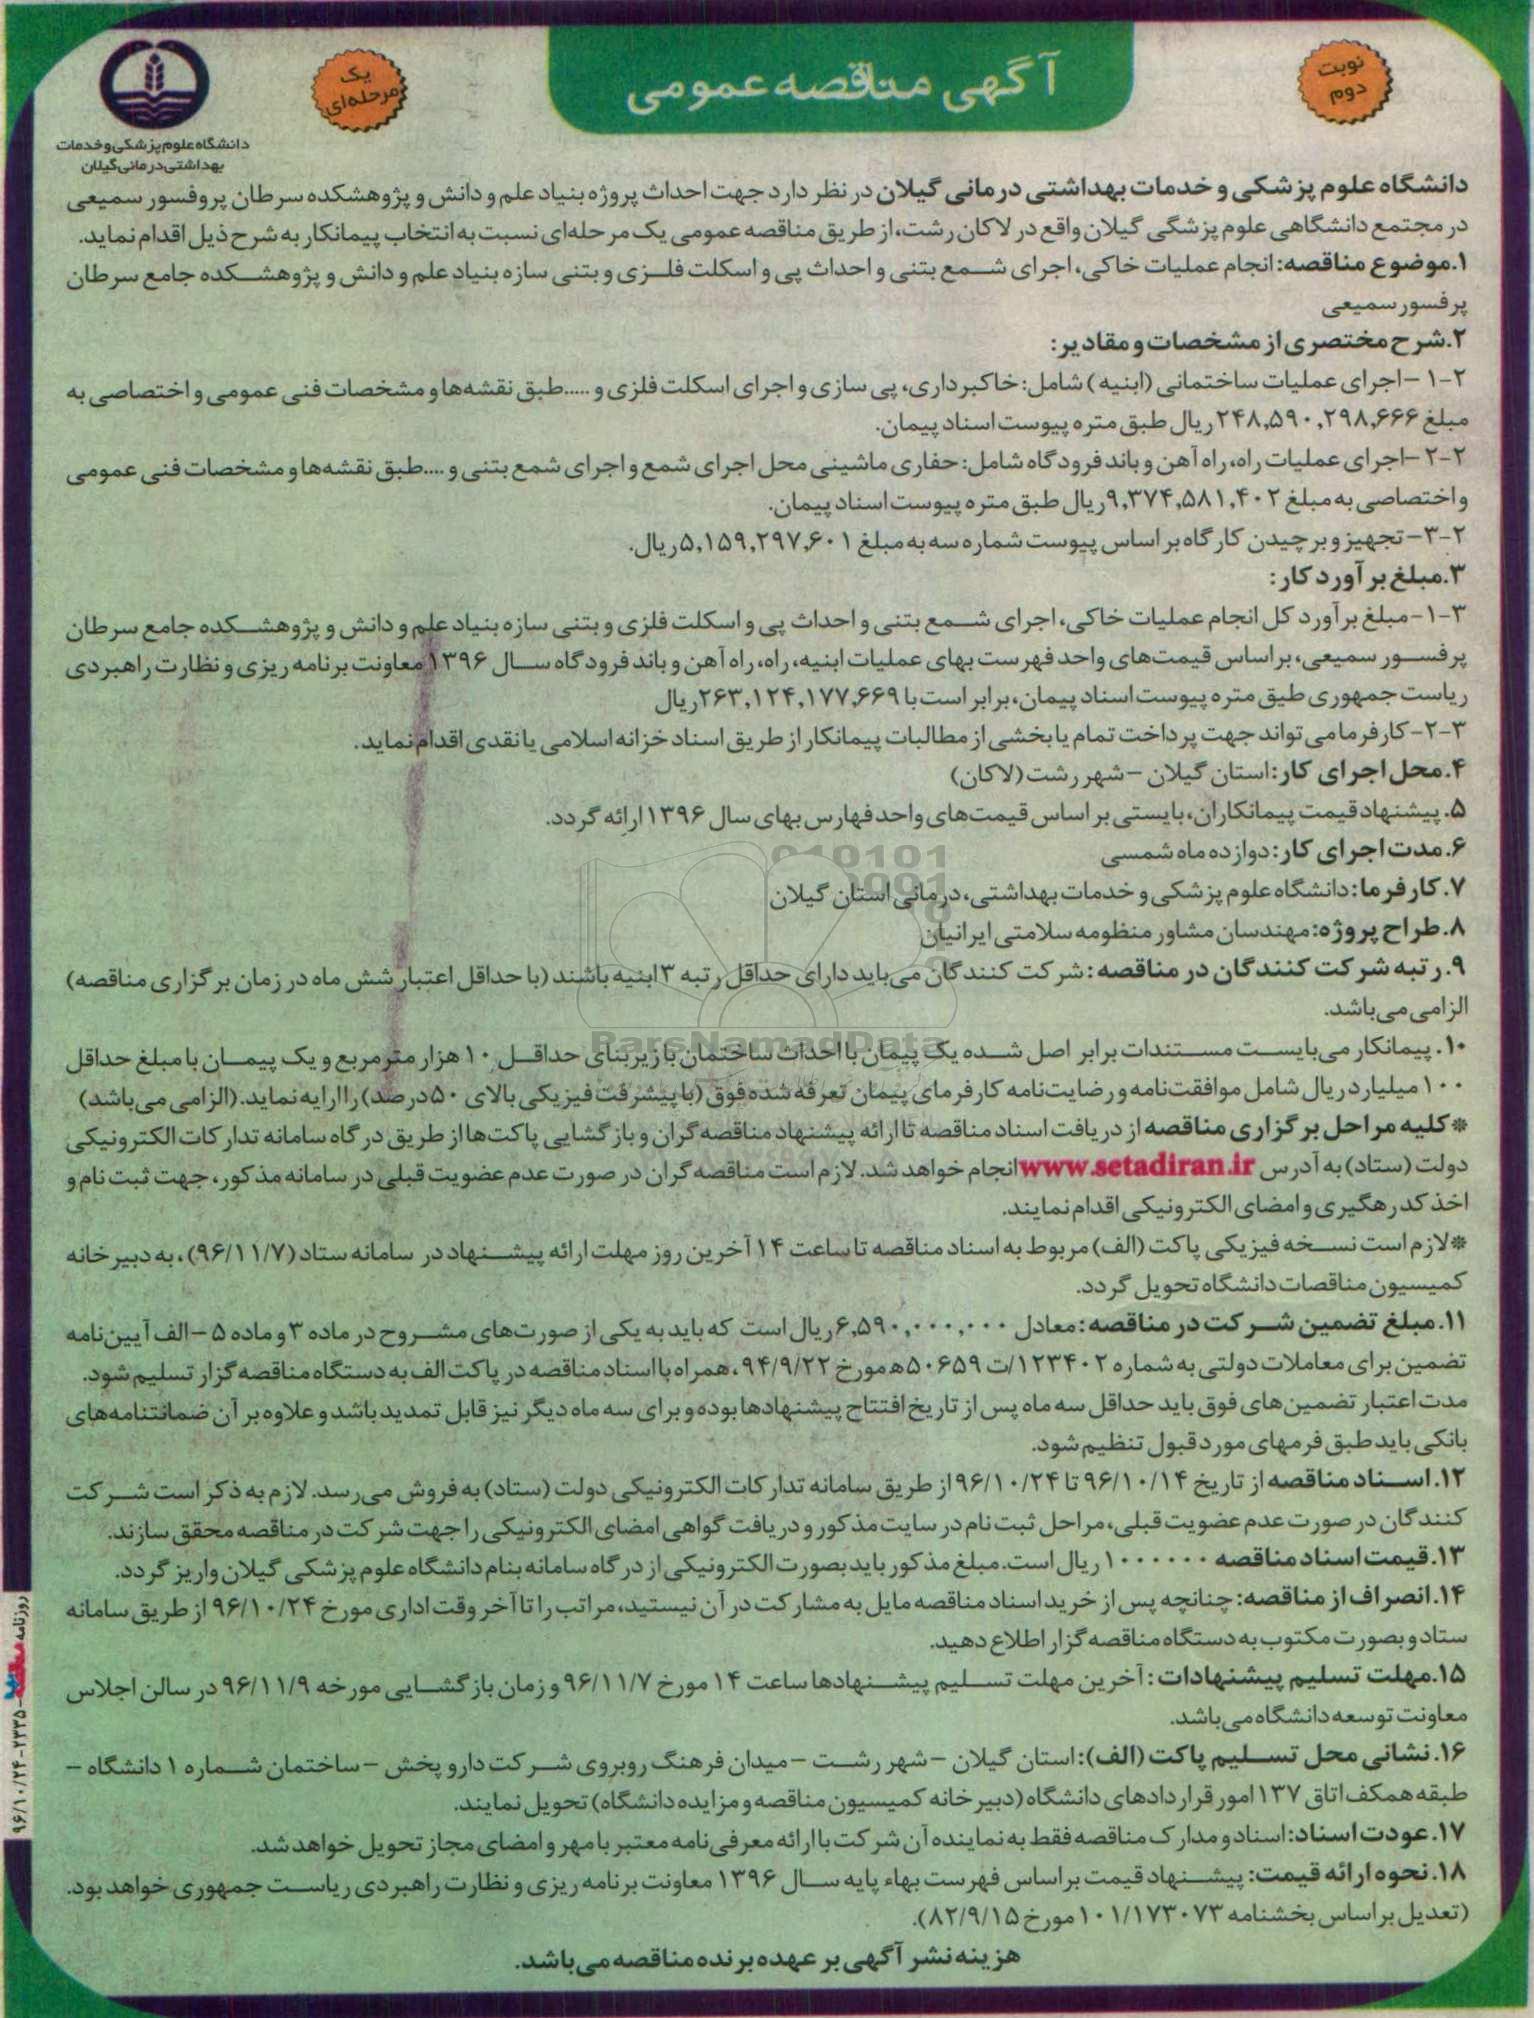 نوبت
دوم
آگهی مناقصه عمومی
یک
مرحله‌ای
دانشگاه علوم پزشکی و خدمات
بهداشتی درمانی گیلان
دانشگاه علوم پزشکی و خدمات بهداشتی درمانی گیلان در نظر دارد جهت احداث پروژه بنیاد علم و دانش و پژوهشکده سرطان پروفسور سمیعی
در مجتمع دانشگاهی علوم پزشگی گیلان واقع در لاکان رشت، از طریق مناقصه عمومی یک مرحله‌ای نسبت به انتخاب پیمانکار به شرح ذیل اقدام نماید.
۱.موضوع مناقصه: انجام عملیات خاکی، اجرای شمع بتنی و احداث پی و اسکلت فلزی و بتنی سازه بنیاد علم و دانش و پژوهشکده جامع سرطان
پرفسور سمیعی
۲.شرح مختصری از مشخصات و مقادیر:
۲-۱ -اجرای عملیات ساختمانی (ابنیه) شامل: خاکبرداری، پی سازی و اجرای اسکلت فلزی و .....طبق نقشه‌ها و مشخصات فنی عمومی و اختصاصی به
مبلغ ۲۴۸,۵۹۰,۲۹۸,۶۶۶ ریال طبق متره پیوست اسناد پیمان.
۲-۲ -اجرای عملیات راه، راه آهن و باند فرودگاه شامل: حفاری ماشینی محل اجرای شمع و اجرای شمع بتنی و ....طبق نقشه‌ها و مشخصات فنی عمومی
و اختصاصی به مبلغ ۹,۳۷۴,۵۸۱,۴۰۲ ریال طبق متره پیوست اسناد پیمان.
۲-۳- تجهیز و برچیدن کارگاه بر اساس پیوست شماره سه به مبلغ ۵,۱۵۹,۲۹۷,۶۰۱ ریال.
۳.مبلغ برآورد کار:
۳-۱-مبلغ برآورد کل انجام عملیات خاکی، اجرای شمع بتنی و احداث پی و اسکلت فلزی و بتنی سازه بنیاد علم و دانش و پژوهشکده جامع سرطان
پرفسور سمیعی، براساس قیمت‌های واحد فهرست بهای عملیات ابنیه، راه، راه آهن و باند فرودگاه سال ۱۳۹۶ معاونت برنامه ریزی و نظارت راهبردی
ریاست جمهوری طیق متره پیوست اسناد پیمان، برابر است با ۲۶۳,۱۲۴,۱۷۷,۶۶۹ ریال
۳-۲- کارفرما می تواند جهت پرداخت تمام یا بخشی از مطالبات پیمانکار از طریق اسناد خزانه اسلامی یا نقدی اقدام نماید.
۴.محل اجرای کار: استان گیلان - شهر رشت (لاکان)
۵. پیشنهاد قیمت پیمانکاران، بایستی بر اساس قیمت‌های واحد فهارس بهای سال ۱۳۹۶ ارائه گردد.
۶.مدت اجرای کار: دوازده ماه شمسی
۷.کارفرما: دانشگاه علوم پزشکی و خدمات بهداشتی، درمانی استان گیلان
۸.طراح پروژه: مهندسان مشاور منظومه سلامتی ایرانیان
۹.رتبه شرکت کنندگان در مناقصه: شرکت کنندگان می‌باید دارای حداقل رتبه ۳ ابنیه باشند (با حداقل اعتبار شش ماه در زمان برگزاری مناقصه)
الزامی می‌باشد.
۱۰. پیمانکار می‌بایست مستندات برابر اصل شده یک پیمان با احداث ساختمان با زیربنای حداقل ۱۰ هزار مترمربع و یک پیمان با مبلغ حداقل
۱۰۰ میلیارد ریال شامل موافقت‌نامه و رضایت‌نامه کارفرمای پیمان تعرفه شده فوق (با پیشرفت فیزیکی بالای ۵۰ درصد) را ارایه نماید. (الزامی می‌باشد)
*کلیه مراحل برگزاری مناقصه از دریافت اسناد مناقصه تا ارائه پیشنهاد مناقصه گران و بازگشایی پاکت‌ها از طریق درگاه سامانه تدارکات الکترونیکی
دولت (ستاد) به آدرس www.setadiran.ir انجام خواهد شد. لازم است مناقصه گران در صورت عدم عضویت قبلی در سامانه مذکور، جهت ثبت نام و
اخذ کد رهگیری و امضای الکترونیکی اقدام نمایند.
*لازم است نسخه فیزیکی پاکت (الف) مربوط به اسناد مناقصه تا ساعت ۱۴ آخرین روز مهلت ارائه پیشنهاد در سامانه ستاد (۹۶/۱۱/۷)، به دبیرخانه
کمیسیون مناقصات دانشگاه تحویل گردد.
۱۱.مبلغ تضمین شرکت در مناقصه: معادل ۶,۵۹۰,۰۰۰,۰۰۰ ریال است که باید به یکی از صورت‌های مشروح در ماده ۳ و ماده ۵ -الف آیین‌نامه
تضمین برای معاملات دولتی به شماره ۱۲۳۴۰۲/ت ۵۰۶۵۹ ه مورخ ۹۴/۹/۲۲، همراه با اسناد مناقصه در پاکت الف به دستگاه مناقصه گزار تسلیم شود.
مدت اعتبار تضمین‌های فوق باید حداقل سه ماه پس از تاریخ افتتاح پیشنهادها بوده و برای سه ماه دیگر نیز قابل تمدید باشد و علاوه بر آن ضمانتنامه‌های
بانکی باید طبق فرمهای مورد قبول تنظیم شود.
۱۲.اسناد مناقصه از تاریخ ۹۶/۱۰/۱۴ تا ۹۶/۱۰/۲۴ از طریق سامانه تدارکات الکترونیکی دولت (ستاد) به فروش می‌رسد. لازم به ذکر است شرکت
کنندگان در صورت عدم عضویت قبلی، مراحل ثبت نام در سایت مذکور و دریافت گواهی امضای الکترونیکی را جهت شرکت در مناقصه محقق سازند.
۱۳.قیمت اسناد مناقصه ۱۰۰۰۰۰۰ ریال است. مبلغ مذکور باید بصورت الکترونیکی از درگاه سامانه بنام دانشگاه علوم پزشکی گیلان واریز گردد.
۱۴.انصراف از مناقصه: چنانچه پس از خرید اسناد مناقصه مایل به مشارکت در آن نیستید، مراتب را تا آخر وقت اداری مورخ ۹۶/۱۰/۲۴ از طریق سامانه
ستاد و بصورت مکتوب به دستگاه مناقصه گزار اطلاع دهید.
۱۵.مهلت تسلیم پیشنهادات: آخرین مهلت تسلیم پیشنهادها ساعت ۱۴ مورخ ۹۶/۱۱/۷ و زمان بازگشایی مورخه ۹۶/۱۱/۹ در سالن اجلاس
معاونت توسعه دانشگاه می‌باشد.
۱۶.نشانی محل تسلیم پاکت (الف): استان گیلان - شهر رشت - میدان فرهنگ روبروی شرکت دارو پخش - ساختمان شماره ۱ دانشگاه -
طبقه همکف اتاق ۱۳۷ امور قراردادهای دانشگاه (دبیرخانه کمیسیون مناقصه و مزایده دانشگاه) تحویل نمایند.
۱۷.عودت اسناد: اسناد و مدارک مناقصه فقط به نماینده آن شرکت با ارائه معرفی‌نامه معتبر با مهر و امضای مجاز تحویل خواهد شد.
۱۸.نحوه ارائه قیمت: پیشنهاد قیمت براساس فهرست بهاء پایه سال ۱۳۹۶ معاونت برنامه ریزی و نظارت راهبردی ریاست جمهوری خواهد بود.
(تعدیل بر اساس بخشنامه ۱۰۱/۱۷۳۰۷۳ مورخ ۸۲/۹/۱۵).
هزینه نشر آگهی بر عهده برنده مناقصه می‌باشد.
روزنامه مناقصه - ۲۳۳۵ - ۹۶/۱۰/۲۴
ParsNamadData